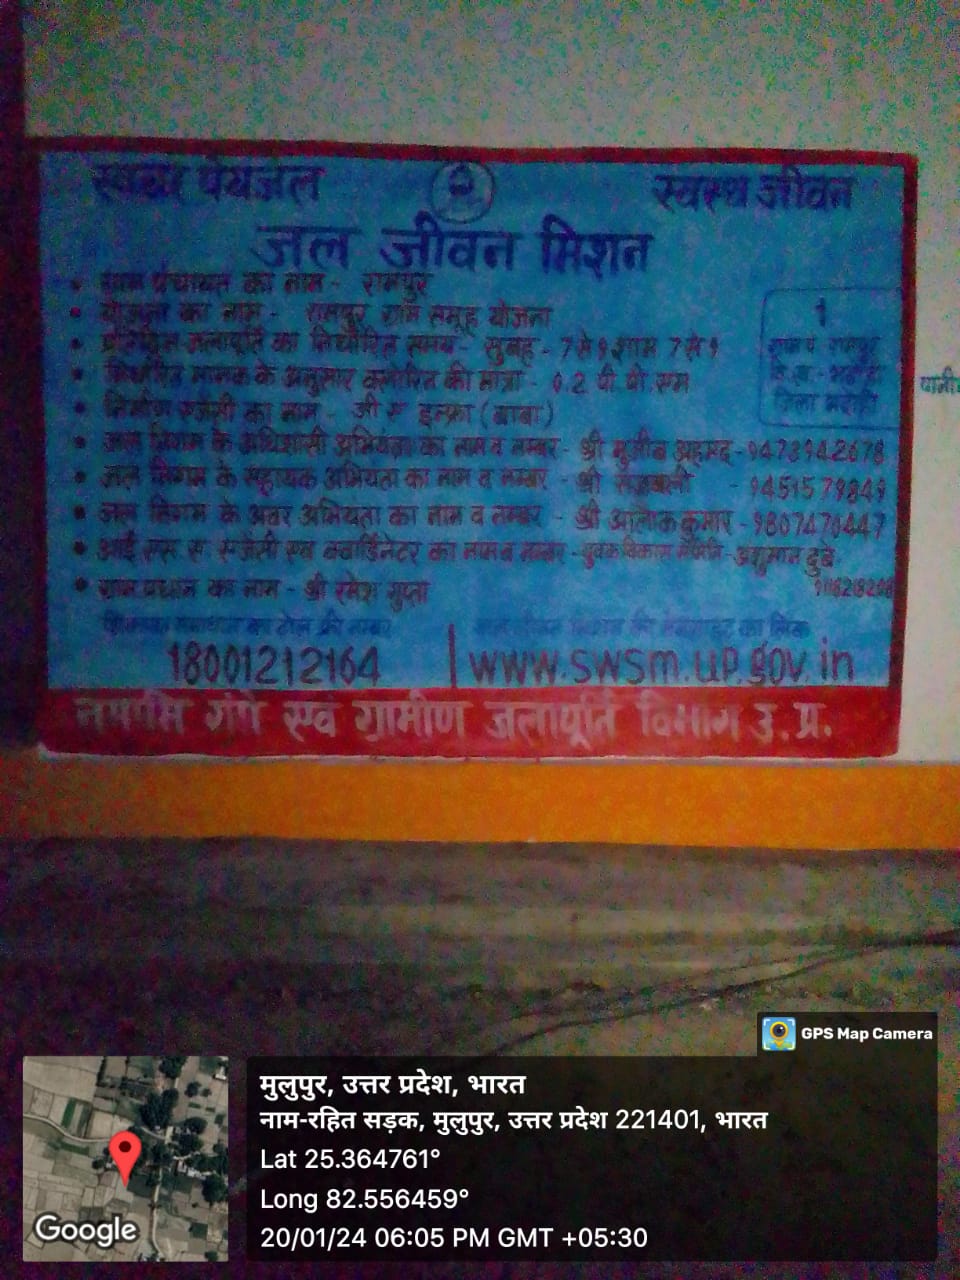 स्वच्छ पेयजल २ स्वस्थ जीवन
जल जीवन मिशन
ग्राम पंचायत का नाम - रामपुर
योजना का नाम - रामपुर ग्राम समूह योजना
प्रतिदिन जलापूर्ति का निर्धारित समय - सुबह - 7 से 9 शाम 7 से 9
निर्धारित मानक के अनुसार क्लोरिन की मात्रा - 0.2 पी.पी.एम
निर्माण एजेंसी का नाम - जी ए इन्फ्रा (बाबा)
जल निगम के अधिशासी अभियंता का नाम व नम्बर - श्री मुजीब अहमद -
जल निगम के सहायक अभियंता का नाम व नम्बर - श्री - 9451579849
जल निगम के अवर अभियंता का नाम व नम्बर - श्री आलोक कुमार - 9807470447
आई एस ए एजेंसी एवं क्वार्डिनेटर का नाम व नम्बर - युवक विकास समिति - अंशुमान दुबे
ग्राम प्रधान का नाम - श्री रमेश गुप्ता
1
ग्राम पं. रामपुर
वि.ख. -
जिला भदोही
का टोल फ्री नम्बर
18001212164
जल जीवन मिशन की वेबसाइट का लिंक
www.swsm.up.gov.in
नमामि गंगे एवं ग्रामीण जलापूर्ति विभाग उ.प्र.
GPS Map Camera
मुलुपुर, उत्तर प्रदेश, भारत
नाम-रहित सड़क, मुलुपुर, उत्तर प्रदेश 221401, भारत
Lat 25.364761°
Long 82.556459°
20/01/24 06:05 PM GMT +05:30
Google